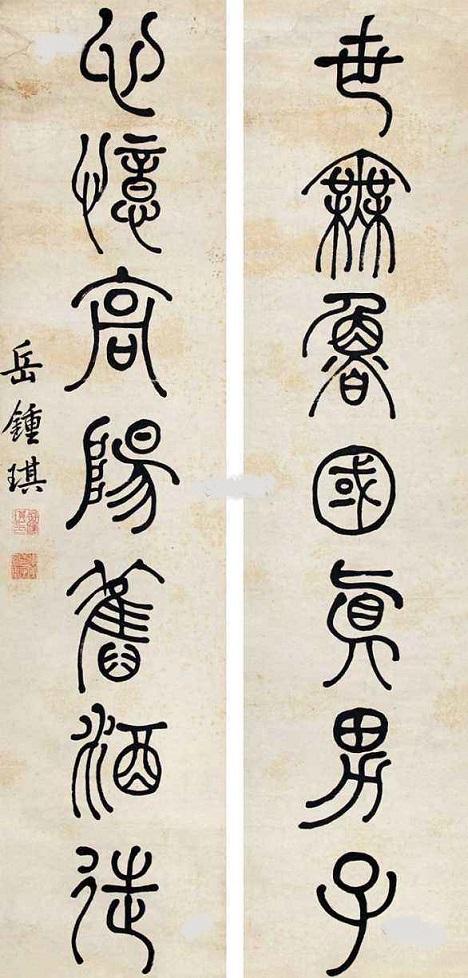 世無魯國真男子
心憶高陽舊酒徒
岳鍾琪